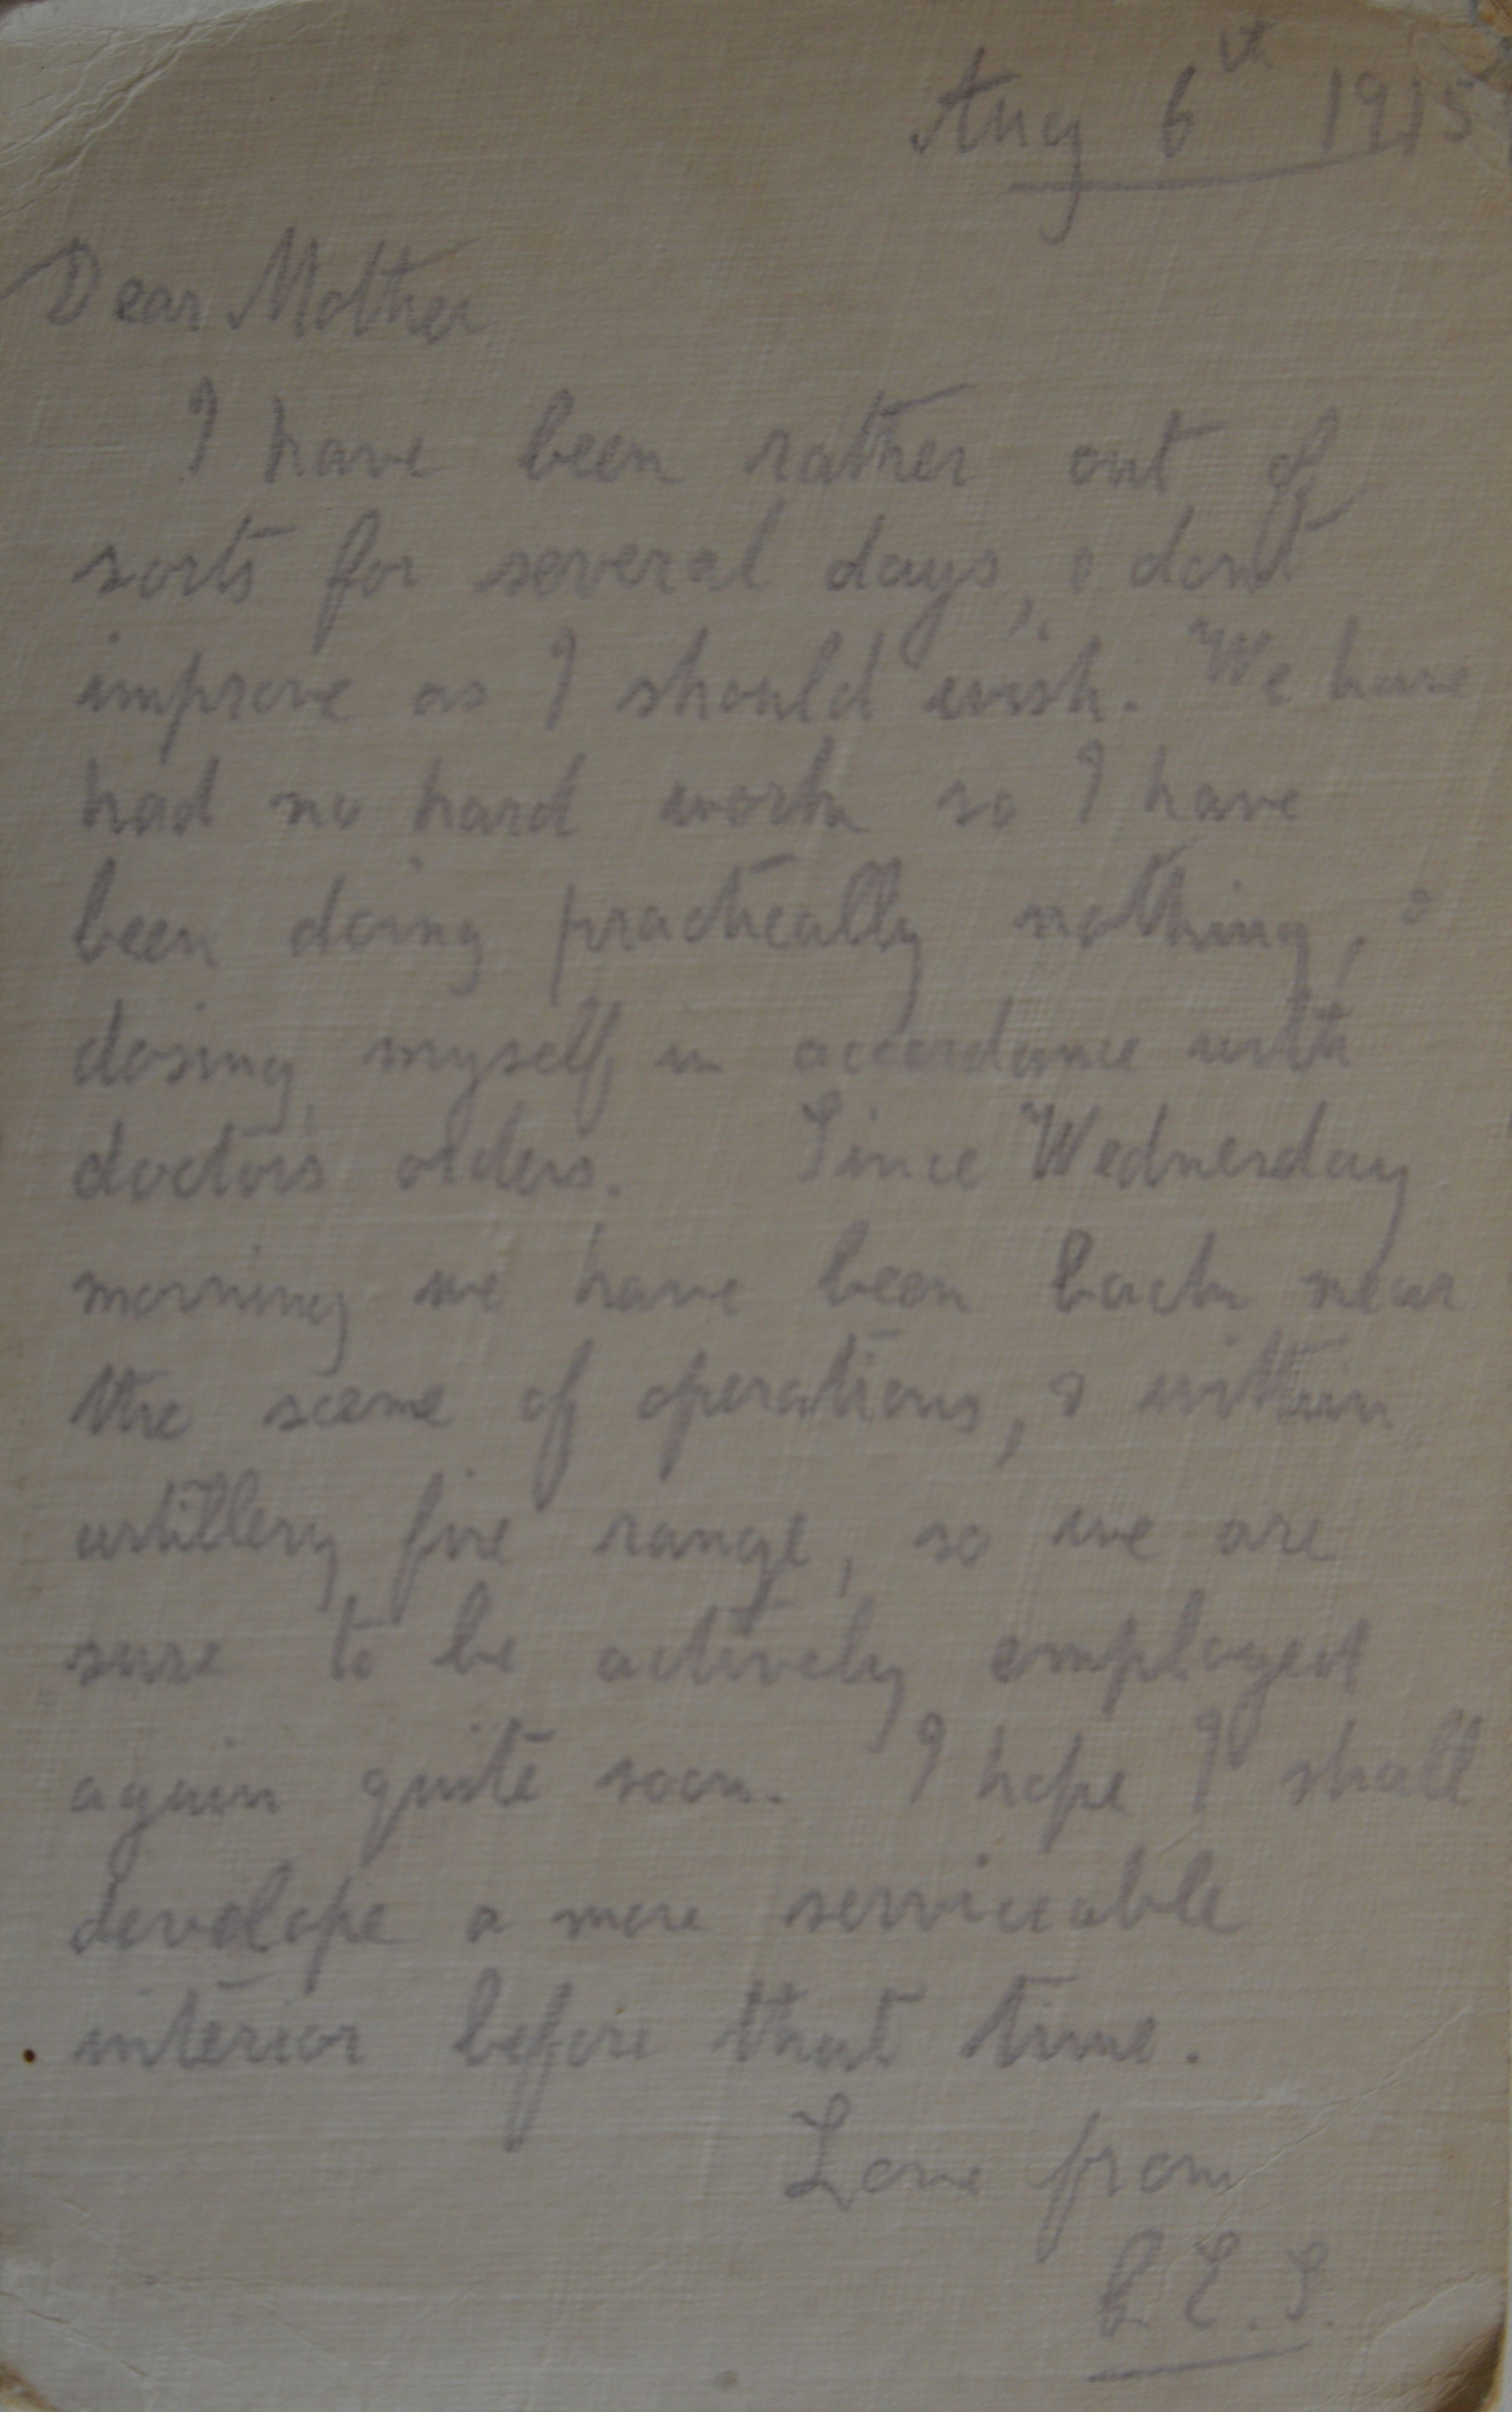 Aug 6th 1915
Dear Mother
I have been rather out of
sorts for several days, & dont
improve as I should wish. We have
had no hard work so I have
been doing practically nothing, &
dosing myself in accordance with
doctors orders. Since Wednesday
morning we have been back near
the scene of operations, & within
artillery fire range, so we are
sure to be actively employed
again quite soon. I hope I shall
develope a more serviceable
interior before that time.
Love from